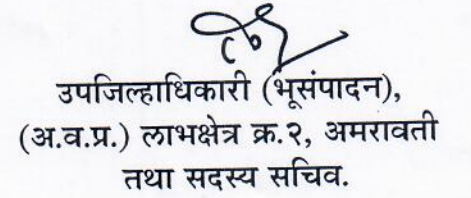 उपजिल्हाधिकारी (भूसंपादन),
(अ.व.प्र.) लाभक्षेत्र क्र.२, अमरावती
तथा सदस्य सचिव.